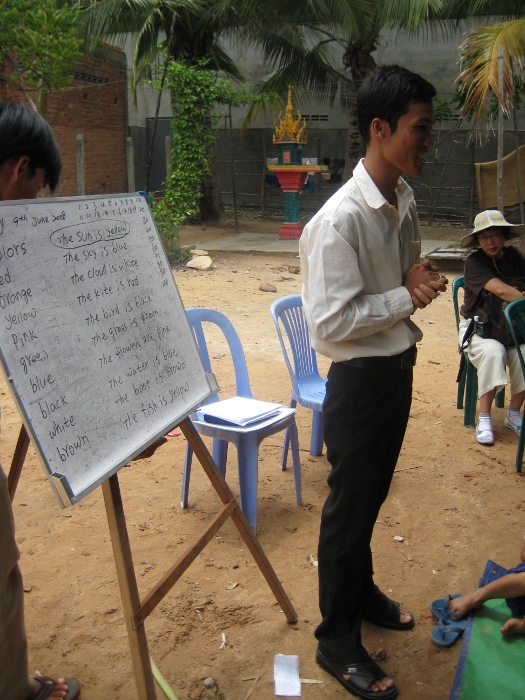 y 9th June 2008
1 2 3 4 5 6 7 8 9 10
olors
ed
Orange
Yellow
Pink
green
blue
black
white
brown
The Sun is Yellow
The sky is blue
The cloud is white
The kite is red
The bird is black
The grass is green
The flowers are pink
The water is blue
The boat is brown
The fish is yellow